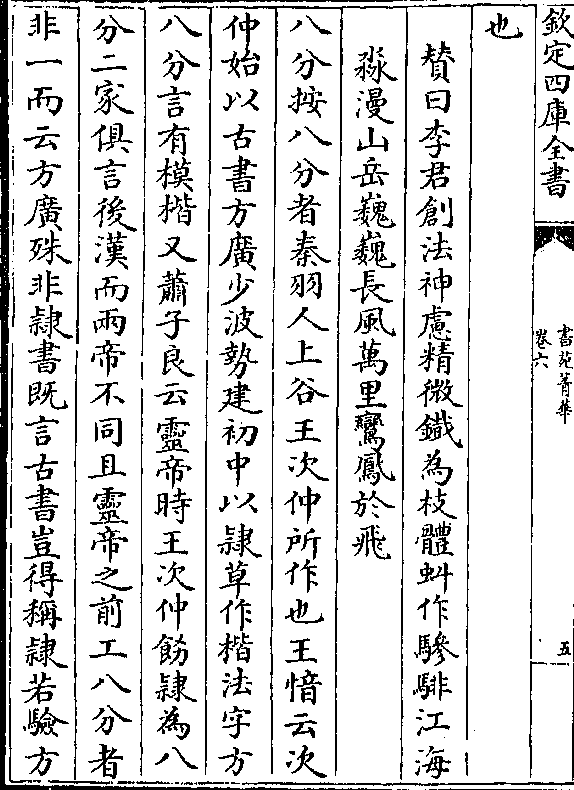 欽定四庫全書
書苑菁華
卷六
五
也
贊曰李君創法神慮精微鐡為枝體虯作驂騑江海
淼漫山岳巍巍長風萬里鸞鳳於飛
八分按八分者秦羽人上谷王次仲所作也王愔云次
仲始以古書方廣少波勢建初中以隷草作楷法字方
八分言有模楷又蕭子良云靈帝時王次仲飾隷為八
分二家俱言後漢而兩帝不同且靈帝之前工八分者
非一而云方廣殊非隷書既言古書豈得稱隷若驗方